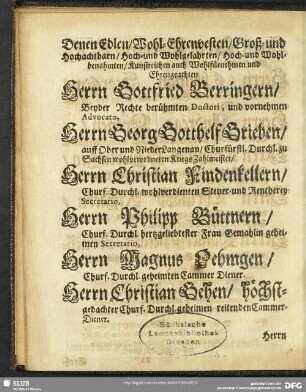 Denen Edlen/Wohl-Ehrenvesten/Groß-und
Hochachtbarn/Hoch-und Wohlgelahrten/Hoch-und Wohl-
benahmten/Kunstreichen auch Wohlfürnehmen und
Ehrengeachten
Herrn Gottfried Berringern/
Beyder Rechte berühmten Doctori, und vornehmen
Advocato,
Herrn Georg Gotthelf Grieben/
auff Ober und Nieder Langenau/Churfürstl. Durchl. zu
Sachsen wohlverordneten Kriegs Zahlmeister/
Herrn Christian Findenkellern/
Churf. Durchl. wohlverdienten Steuer-und Rentherey
Secretario,
Herrn Philipp Büttnern/
Churf. Durchl. hertzgeliebtester Frau Gemahlin gehei-
men Secretario,
Herrn Magnus Oehmgen/
Churf. Durchl. geheimten Cammer Diener.
Herrn Christian Gehen/ höchst-
gedachter Churf. Durchl. geheimen reitenden Cammer-
Diener.
Herrn
Sächsische
Landesbibliothek
Dresden
SLUB